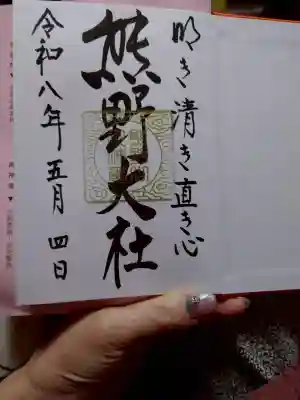 明き清き直き心
熊野大社
令和八年五月四日